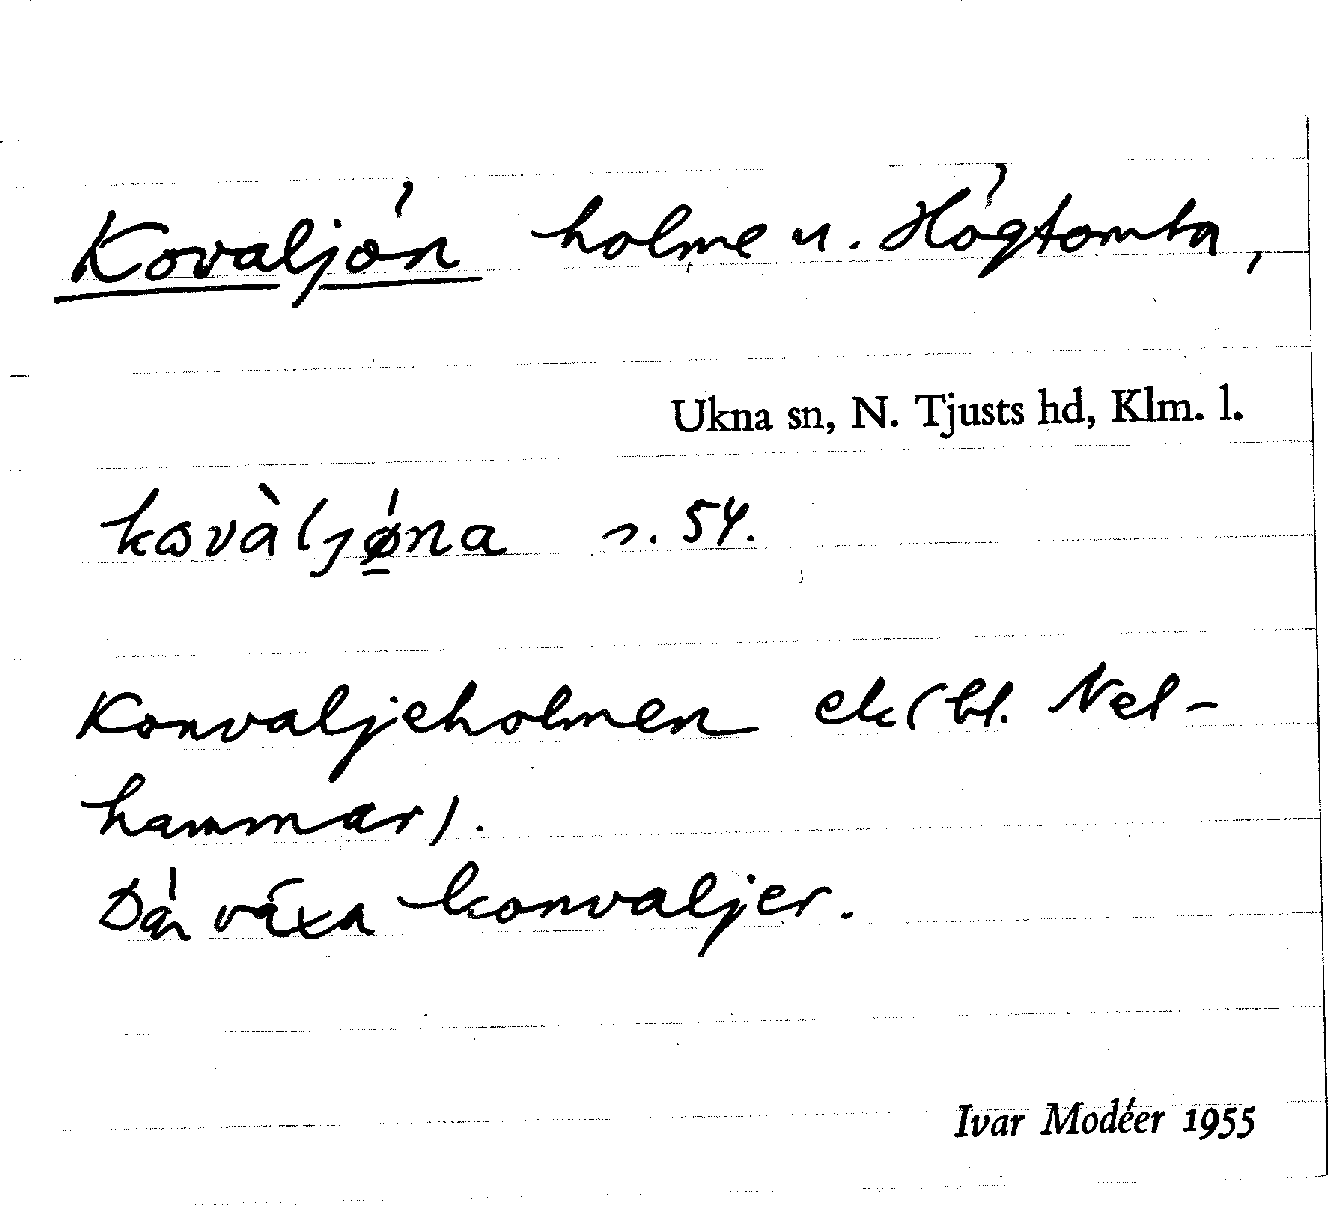 Kovaljön holme u. Högtomta,
Ukna sn, N. Tjusts hd, Klm. l.
kɷvàljǿ̱na s. 54.
Konvaljeholmen ek (bl. Nel-
hammar).
Där växa konvaljer.
Ivar Modéer 1955